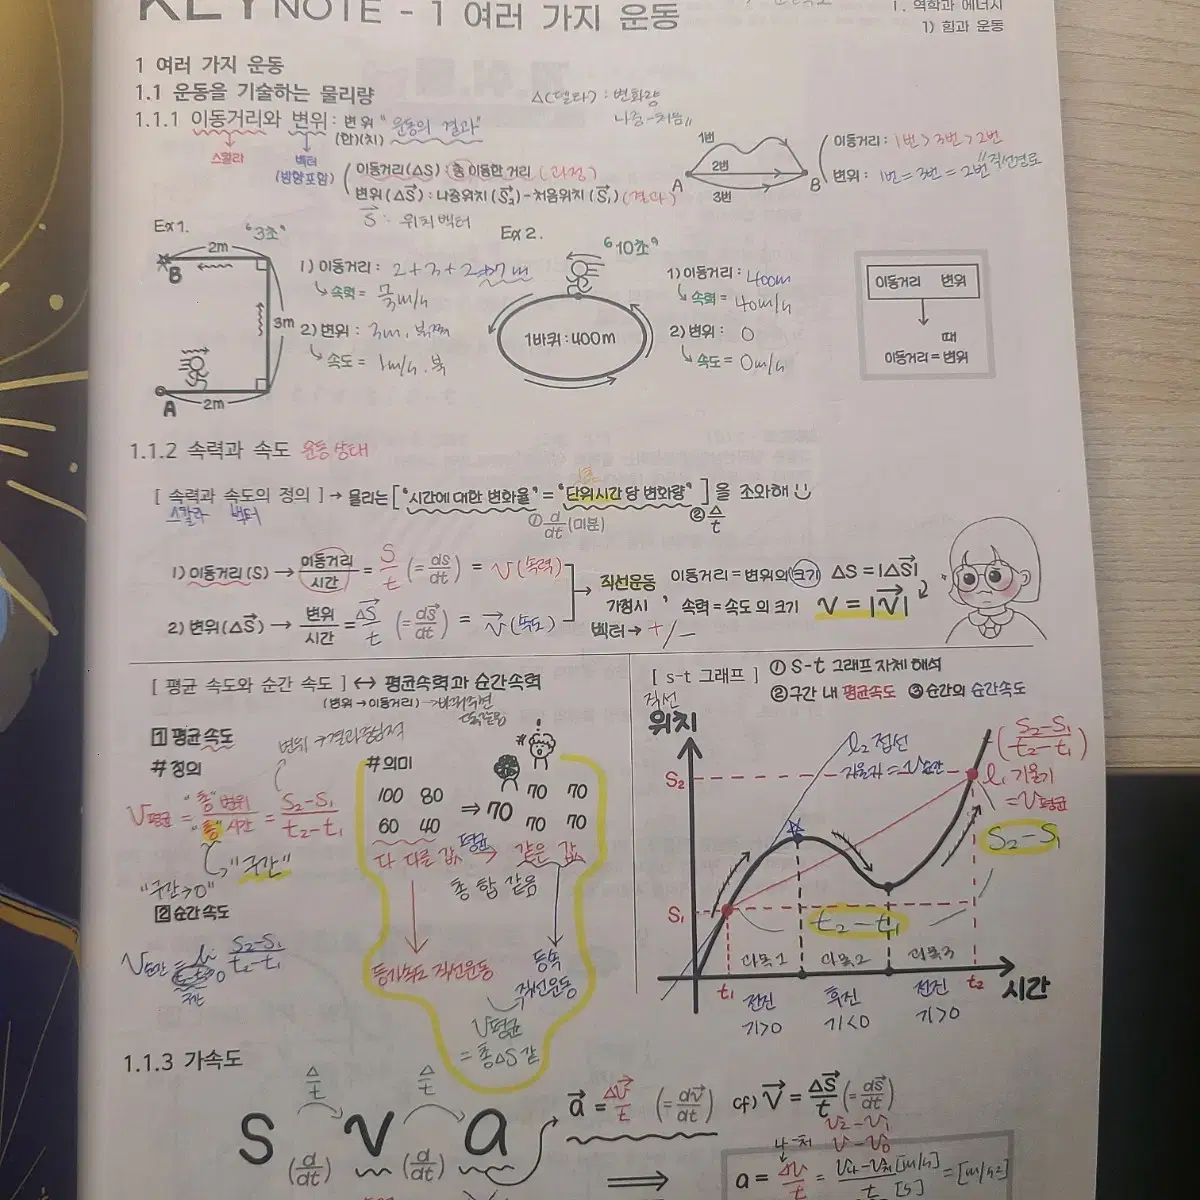 KEYNOTE - 1 여러 가지 운동
1. 역학과 에너지
1) 힘과 운동
1 여러 가지 운동
1.1 운동을 기술하는 물리량
Δ(델타) : 변화량
나중-처음
1.1.1 이동거리와 변위 : 변위 "운동의 결과"
(만)(치)
스칼라
벡터
(방향포함)
이동거리(ΔS) : 총 이동한 거리 (과정)
변위(ΔS⃗) : 나중위치(S⃗₂) - 처음위치(S⃗₁) (결과)
S⃗ : 위치벡터
1번
2번
3번
A
B
이동거리 : 1번 > 3번 > 2번
변위 : 1번 = 3번 = 2번 "직선경로
Ex1.
"3초"
2m
B
3m
A
2m
1) 이동거리 : 2+3+2=7m
속력 = m/s
2) 변위 : 3m, 북쪽
속도 = 1m/s. 북
Ex2.
"10초"
1바퀴 : 400m
1) 이동거리 : 400m
속력 = 40m/s
2) 변위 : 0
속도 = 0m/s
이동거리 변위
때
이동거리 = 변위
1.1.2 속력과 속도 운동상태
[ 속력과 속도의 정의 ] → 물리는 ["시간에 대한 변화율" = "단위시간 당 변화량"] 을 조와해
스칼라 벡터
① d/dt (미분)
② Δ/t
1) 이동거리(S) → 이동거리/시간 = S/t (= ds/dt) = v (속력)
2) 변위(ΔS⃗) → 변위/시간 = ΔS⃗/t (= ds⃗/dt) = v⃗ (속도)
직선운동
가정시
이동거리 = 변위의 크기 ΔS = |ΔS⃗|
속력 = 속도의 크기 v = |v⃗|
벡터 → +/-
[ 평균 속도와 순간 속도 ] ↔ 평균속력과 순간속력
(변위 → 이동거리)
1 평균속도
변위 → 결과
#정의
v평균 = "총" 변위/"총" 시간 = S₂-S₁/t₂-t₁
"구간"
"구간→0"
2 순간속도
v순간 = S₂-S₁/t₂-t₁
구간
#의미
100 80
60 40
⇒ 70
70 70
70 70
다 다른 값 평균 → 같은 값
총 합 같음
등가속도 직선운동
등속
직선운동
v평균
= 총ΔS 같
[ s-t 그래프 ] ① S-t 그래프 자체 해석
② 구간 내 평균속도 ③ 순간의 순간속도
직선
위치
l₂ 접선
기울기 = v순간
(S₂-S₁/t₂-t₁)
l₁ 기울기
= v평균
S₂
S₂-S₁
S₁
t₂-t₁
t₁
t₂
시간
전진
후진
전진
기>0
기<0
기>0
1.1.3 가속도
Δ/t
Δ/t
S v a
(d/dt)
(d/dt)
a⃗ = Δv⃗/t (= dv⃗/dt) cf) v⃗ = ΔS⃗/t (= ds⃗/dt)
v₂-v₁
v-v₀
나-처
a = Δv/t = [m/s]/[s] = [m/s²]